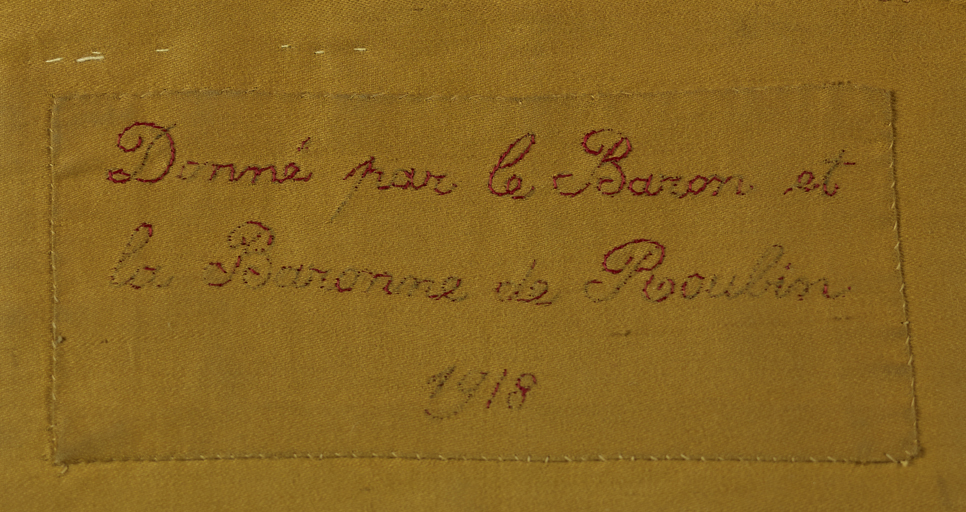 Donné par le Baron et
la Baronne de Roubin
1918